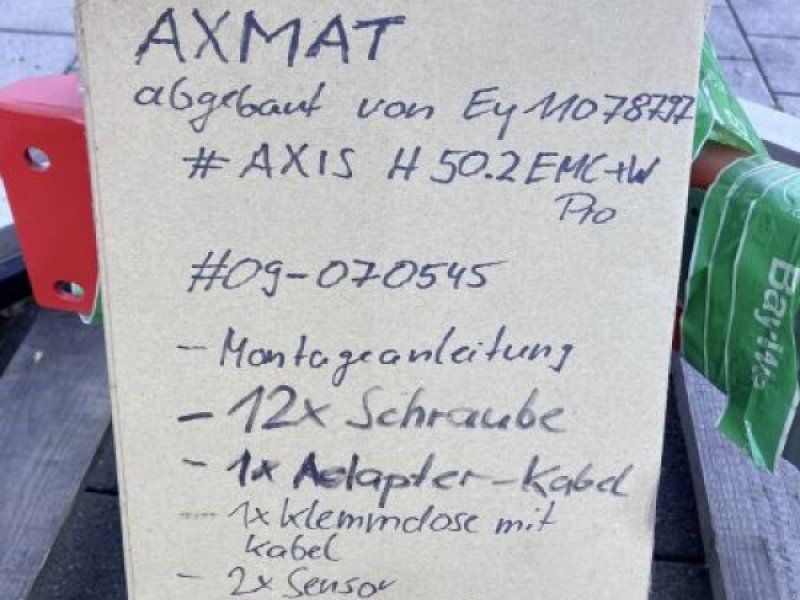 AXMAT
abgebaut von Ey 11078797
# AXIS H 50.2 EMC+W
Pro
#09-070545
- Montageanleitung
- 12x Schraube
- 1x Adapter-Kabel
- 1x Klemmdose mit
Kabel
- 2x Sensor
BayWa